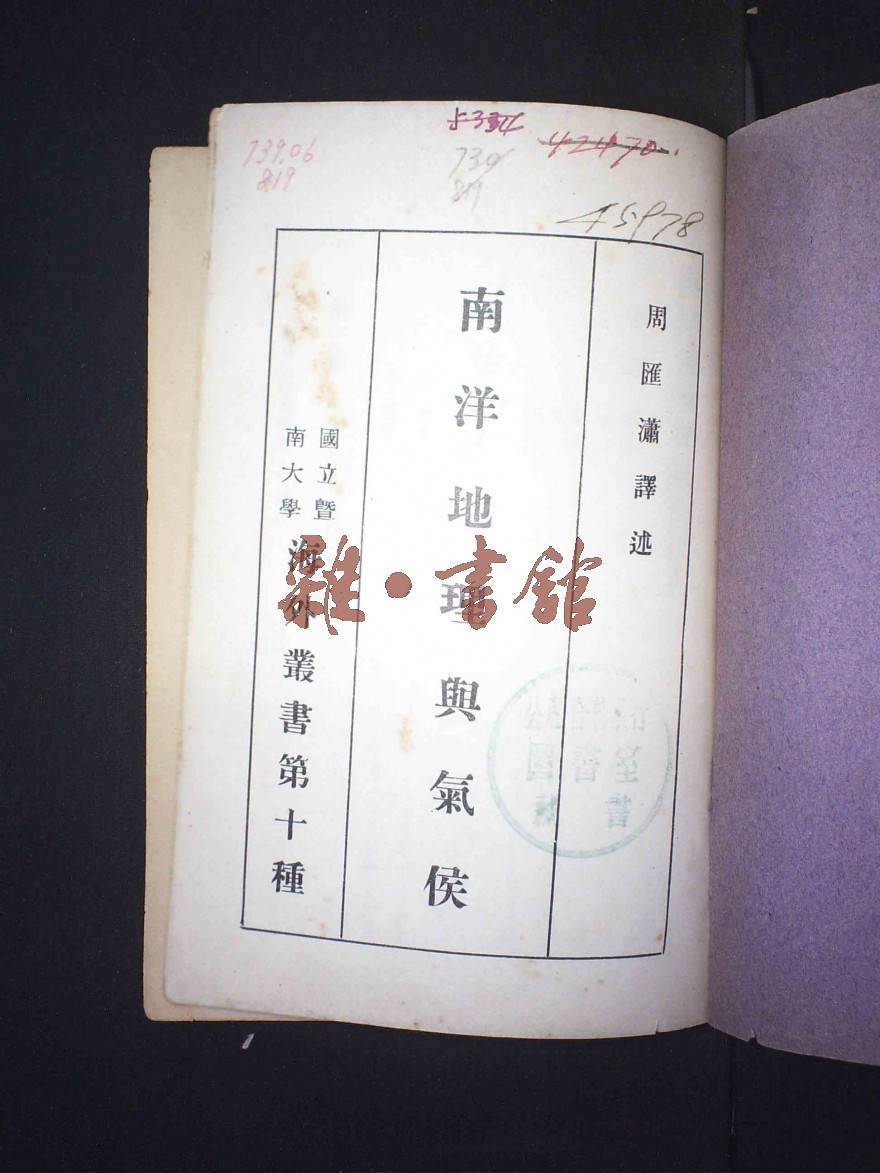 739.06
819
5334
730
819
42470
45978
周匯瀟譯述
南洋地理與氣侯
國立暨
南大學
海外叢書第十種
雜·書館
圖書室